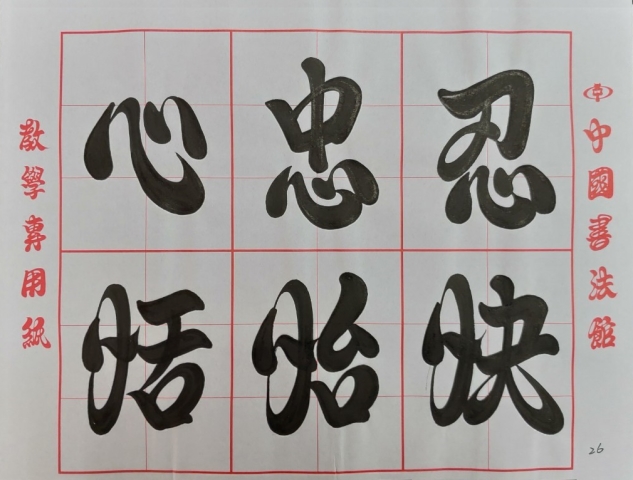 中國書法館
忍忠心
快怡恬
教學專用紙
26